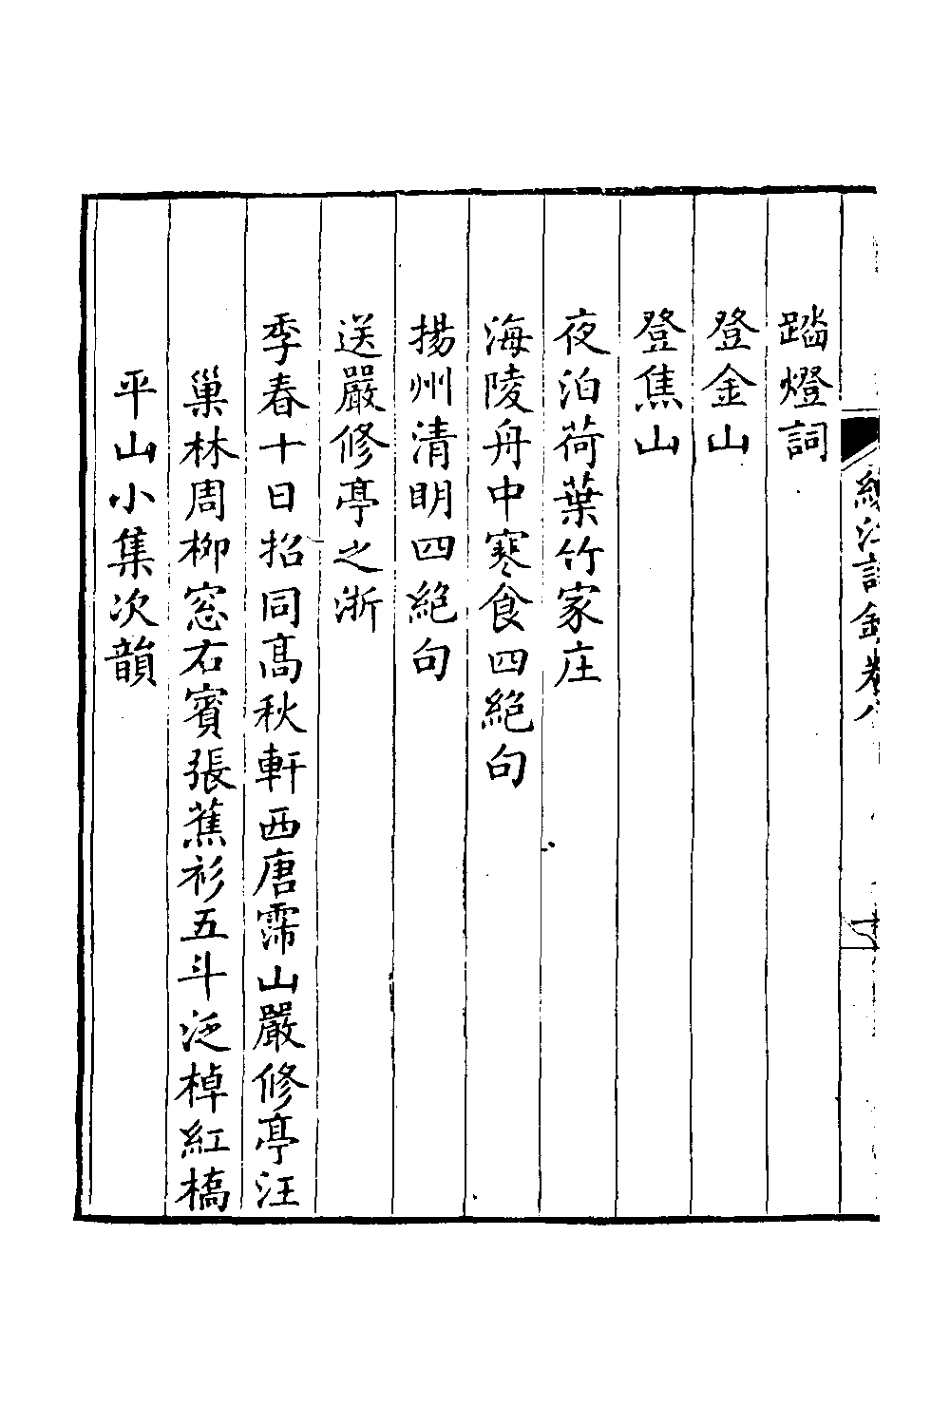 踏燈詞
登金山
登焦山
夜泊荷葉竹家庄
海陵舟中寒食四絕句
揚州清明四絕句
送嚴修亭之浙
季春十日招同高秋軒西唐霈山嚴修亭汪
巢林周柳窓右賓張蕉衫五斗泛棹紅橋
平山小集次韻